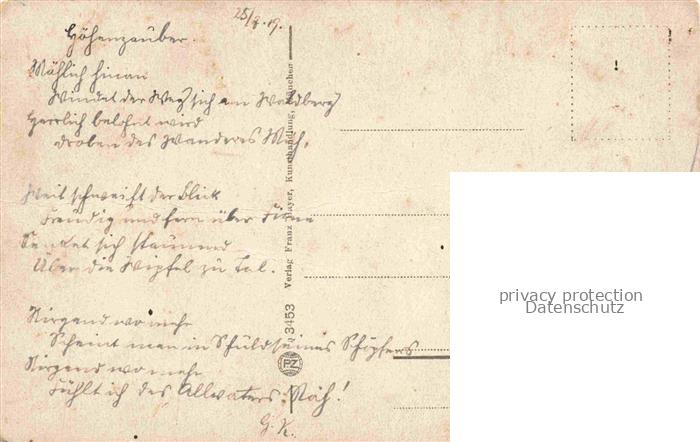 25/8.19.
Höhenzauber.
Mählich hinan
Windet der Weg sich am Waldberg
Herrlich belohnt wird
droben des Wanderers Müh.
Weit schweift der Blick
Freudig und fern über
Senket sich staunend
Über die Wipfel zu Tal.
Nirgend wo mehr
Scheint man in Schöpfers
Nirgend wo mehr
Fühlt ich des Allvaters Näh!
G. K.
Verlag Franz Mayer, Kunsthandlung, München
3453
privacy protection
Datenschutz